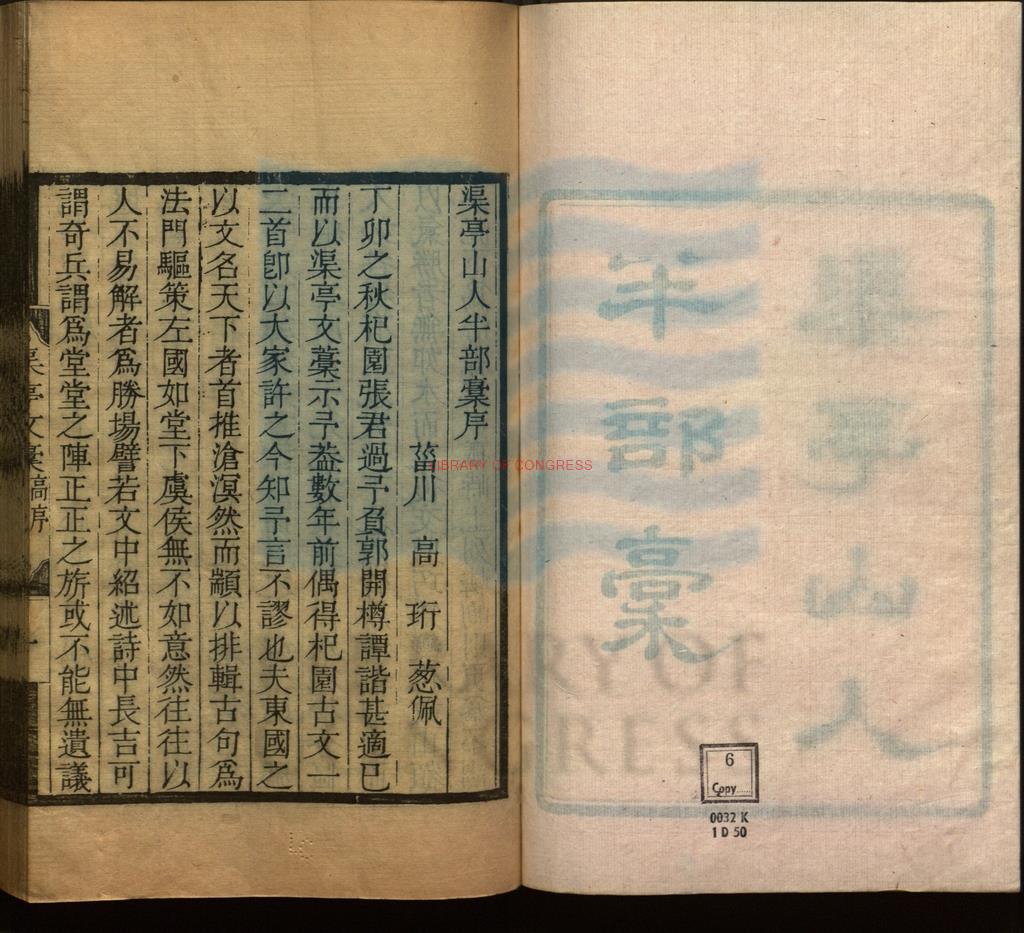 渠亭山人半部稾序
菑川　高　珩　葱佩
丁卯之秋杞園張君過予負郭開樽譚諧甚適已
而以渠亭文藁示予葢數年前偶得杞園古文一
二首卽以大家許之今知予言不謬也夫東國之
以文名天下者首推滄溟然而顓以排輯古句爲
法門驅策左國如堂下虞侯無不如意然往往以
人不易解者爲勝場譬若文中紹述詩中長吉可
謂奇兵謂爲堂堂之陣正正之旂或不能無遺議
渠亭文稾 高序 一
渠亭山人
半部稾
LIBRARY OF CONGRESS
6
Copy
0032 K
1 D 50